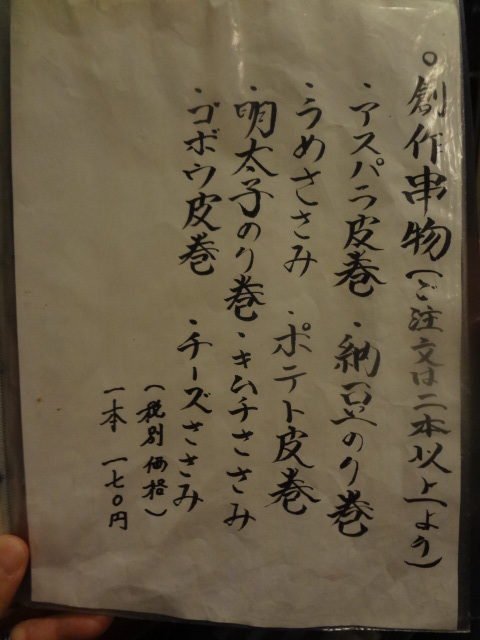 ○創作串物(ご注文は二本以上より)
・アスパラ皮巻 ・納豆のり巻
・うめささみ ・ポテト皮巻
・明太子のり巻 ・キムチささみ
・ゴボウ皮巻 ・チーズささみ
(税別価格)
一本 一七〇円